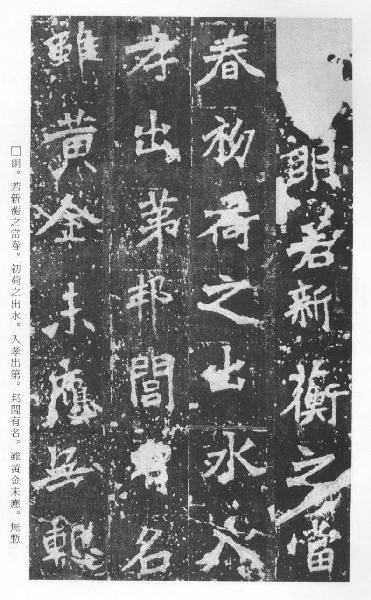 明若新蘅之當
春初荷之出水入
孝出第邦閭有名
雖黃金未應無慙
□明。若新蘅之當春。初荷之出水。入孝出第。邦閭有名。雖黃金未應。無慙